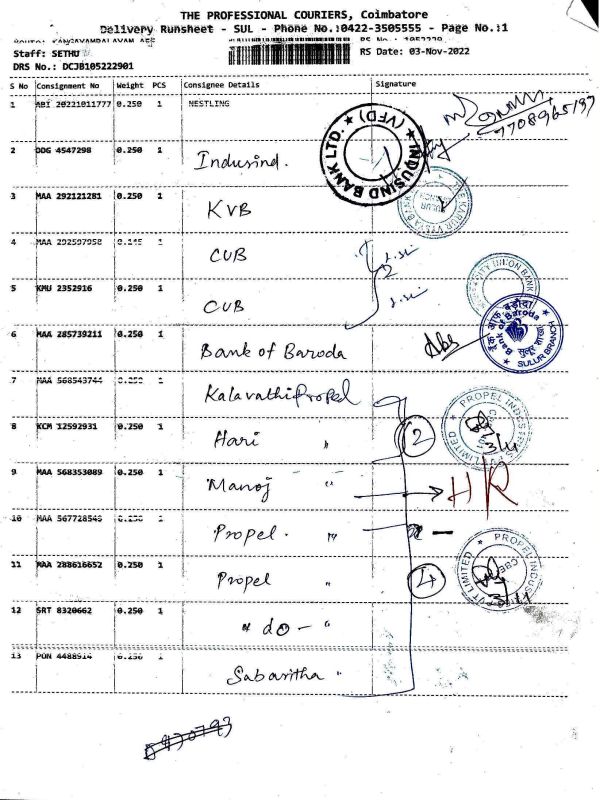 THE PROFESSIONAL COURIERS, Coimbatore
Delivery Runsheet - SUL - Phone No.:0422-3505555 - Page No.:1
Staff: SETHU
RS Date: 03-Nov-2022
DRS No.: DCJB105222901
S No Consignment No Weight PCS Consignee Details Signature
1 ABI 20221011777 0.250 1 NESTLING
7708965197
2 DDG 4547298 0.250 1 Indusind.
INDUSIND BANK LTD. ★ (VFD) ★
3 MAA 292121281 0.250 1 KVB
4 MAA 1 CUB
2
5 KMU 2352916 0.250 1 CUB
CITY UNION BANK
6 MAA 285739211 0.250 1 Bank of Baroda
बैंक ऑफ़ बड़ौदा
Bank of Baroda
SULUR BRANCH
7 MAA 568543744 0.250 1 Kalavathi Propel
8 KCM 12592931 0.250 1 Hari "
2
PROPEL INDUSTRIES PVT LIMITED
3/11
9 MAA 568353089 0.250 1 Manoj "
HR
10 MAA 567728543 0.250 1 Propel. "
11 MAA 288616652 0.250 1 Propel "
4
PROPEL INDUSTRIES PVT LIMITED
3/11
12 SRT 8320662 0.250 1 " do - "
13 PON 4488914 0.250 1 Sabaritha "